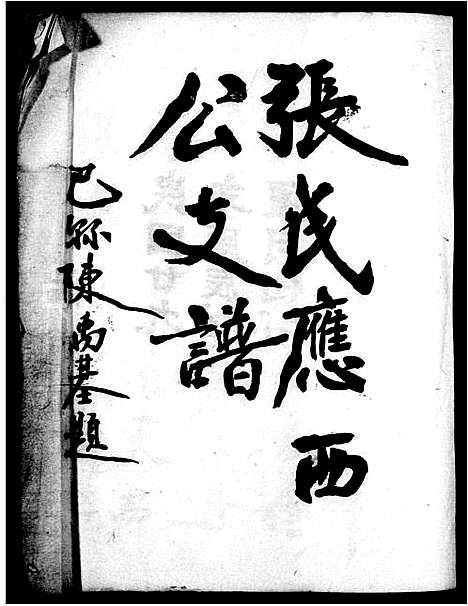 張氏應西
公支譜
巴縣陳禹基題